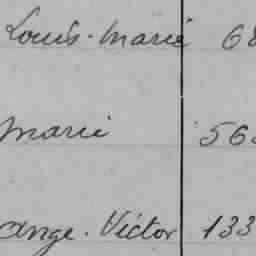 Louis. Marie 68
Marie 56
Ange. Victor 133